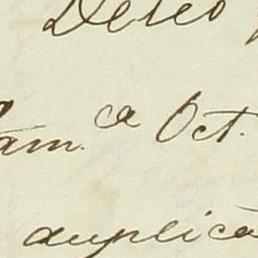 Deseo
am.ca Oct.
duplica